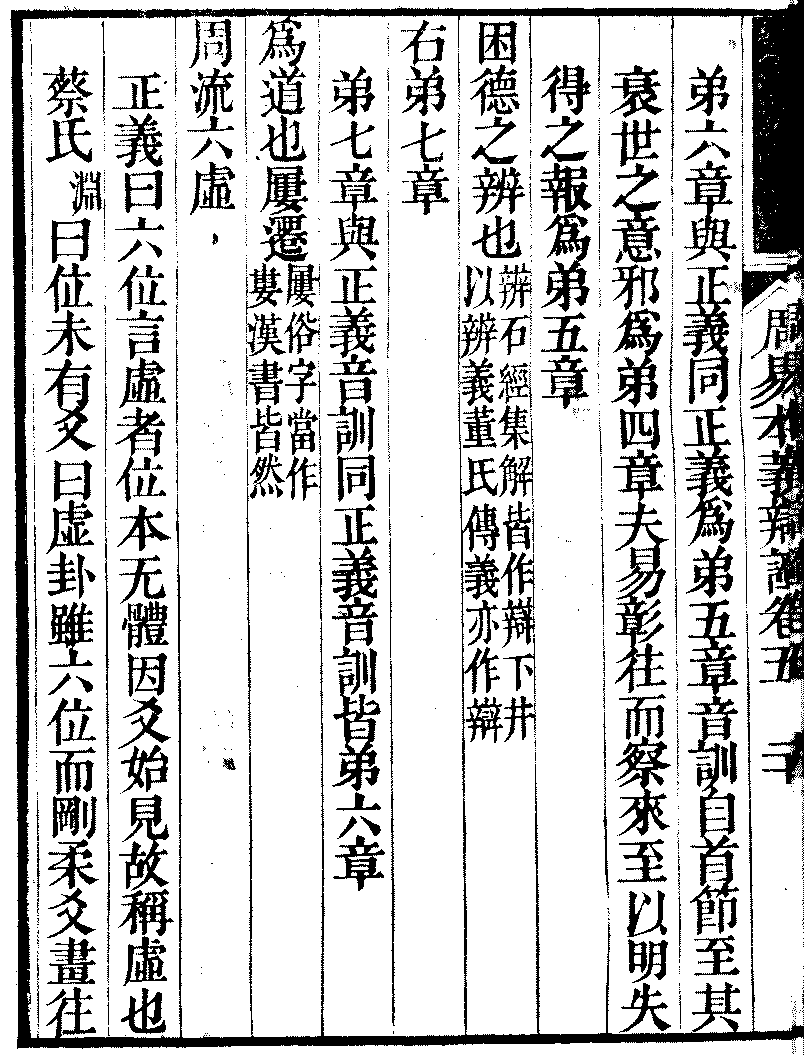 周易本義辯證卷五 二
弟六章與正義同正義爲弟五章音訓自首節至其
衰世之意邪爲弟四章夫易彰往而察來至以明失
得之報爲弟五章
困德之辨也辨石經集解皆作辯下井以辨義董氏傳義亦作辯
右弟七章
弟七章與正義音訓同正義音訓皆弟六章
爲道也屢遷屢俗字當作婁漢書皆然
周流六虛
正義曰六位言虛者位本无體因爻始見故稱虛也
蔡氏淵曰位未有爻曰虛卦雖六位而剛柔爻畫往